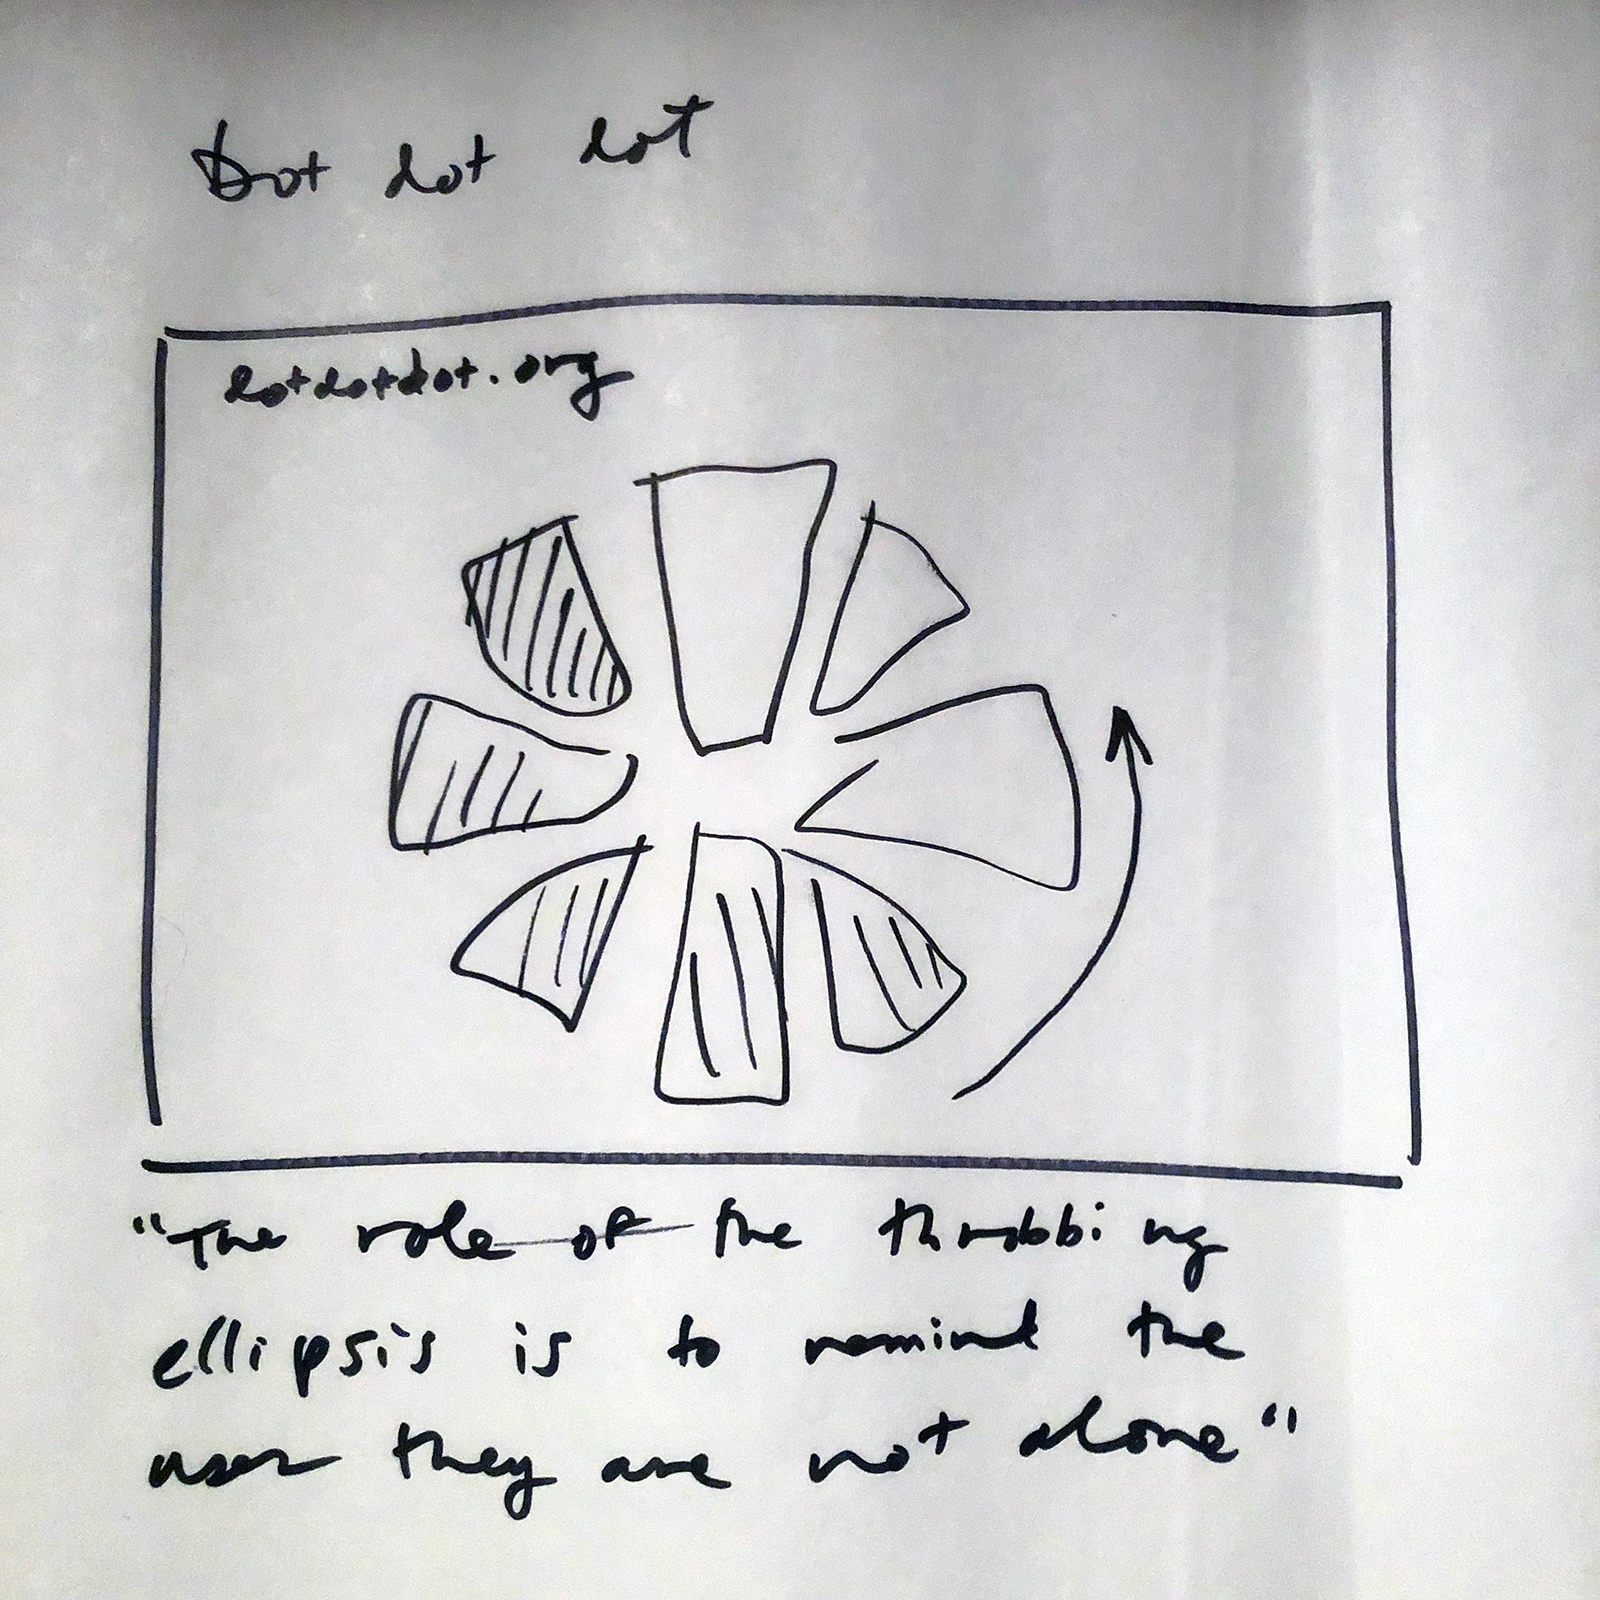 Dot dot dot
dotdotdot.org
"The role of the throbbing
ellipsis is to remind the
user they are not alone"